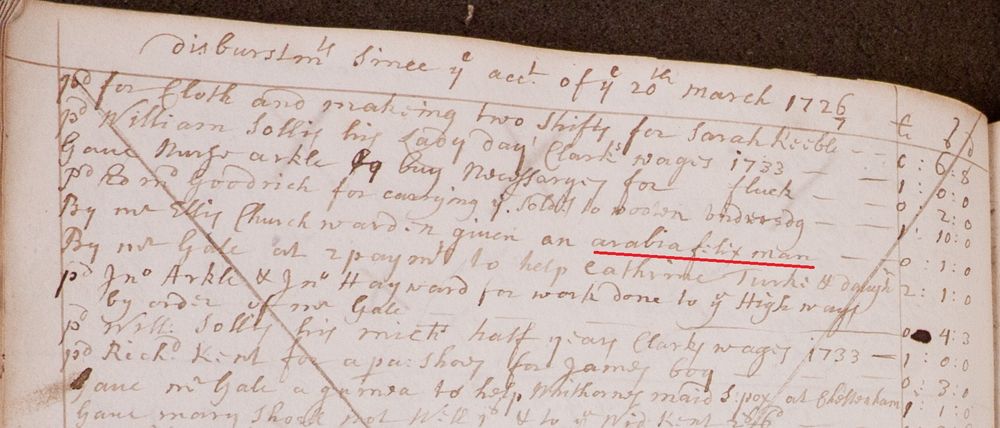 disburstmts Since ye acct of ye 20th March 1726/7
£ s d
pd for Cloth and makeing two Shifts for Sarah Keeble - - 0 : 6 : 8
pd William Sollis his Lady day Clarks wages 1733 - - 1 : 0 : 0
Gave Nurse arkle to buy Necessaryes for fluck - - 0 : 2 : 0
pd Edmd Goodrich for carrying ye Soldr to wooten underedg - 1 : 10 : 0
By mr Ellis Churchwarden given an arabia felix man - - 0 : 1 : 0
By mr Gale at 2 paymts to help Cathrine Turks daugh 2 : 1 : 0
pd Jno Arkle & Jno Hayward for work done to ye High ways
by order of mr Gale 0 4 : 3
pd Will: Sollis his micts half years Clarks wages 1733 - 1 : 0 : 0
pd Richd Kent for a pa: Shoes for James boy - 0 : 3 : 0
Gave mr Gale a guinea to help Whithornes maid S: pox at Cheltenham 1 : 1 : 0
Gave mary & to ye Wid Kent